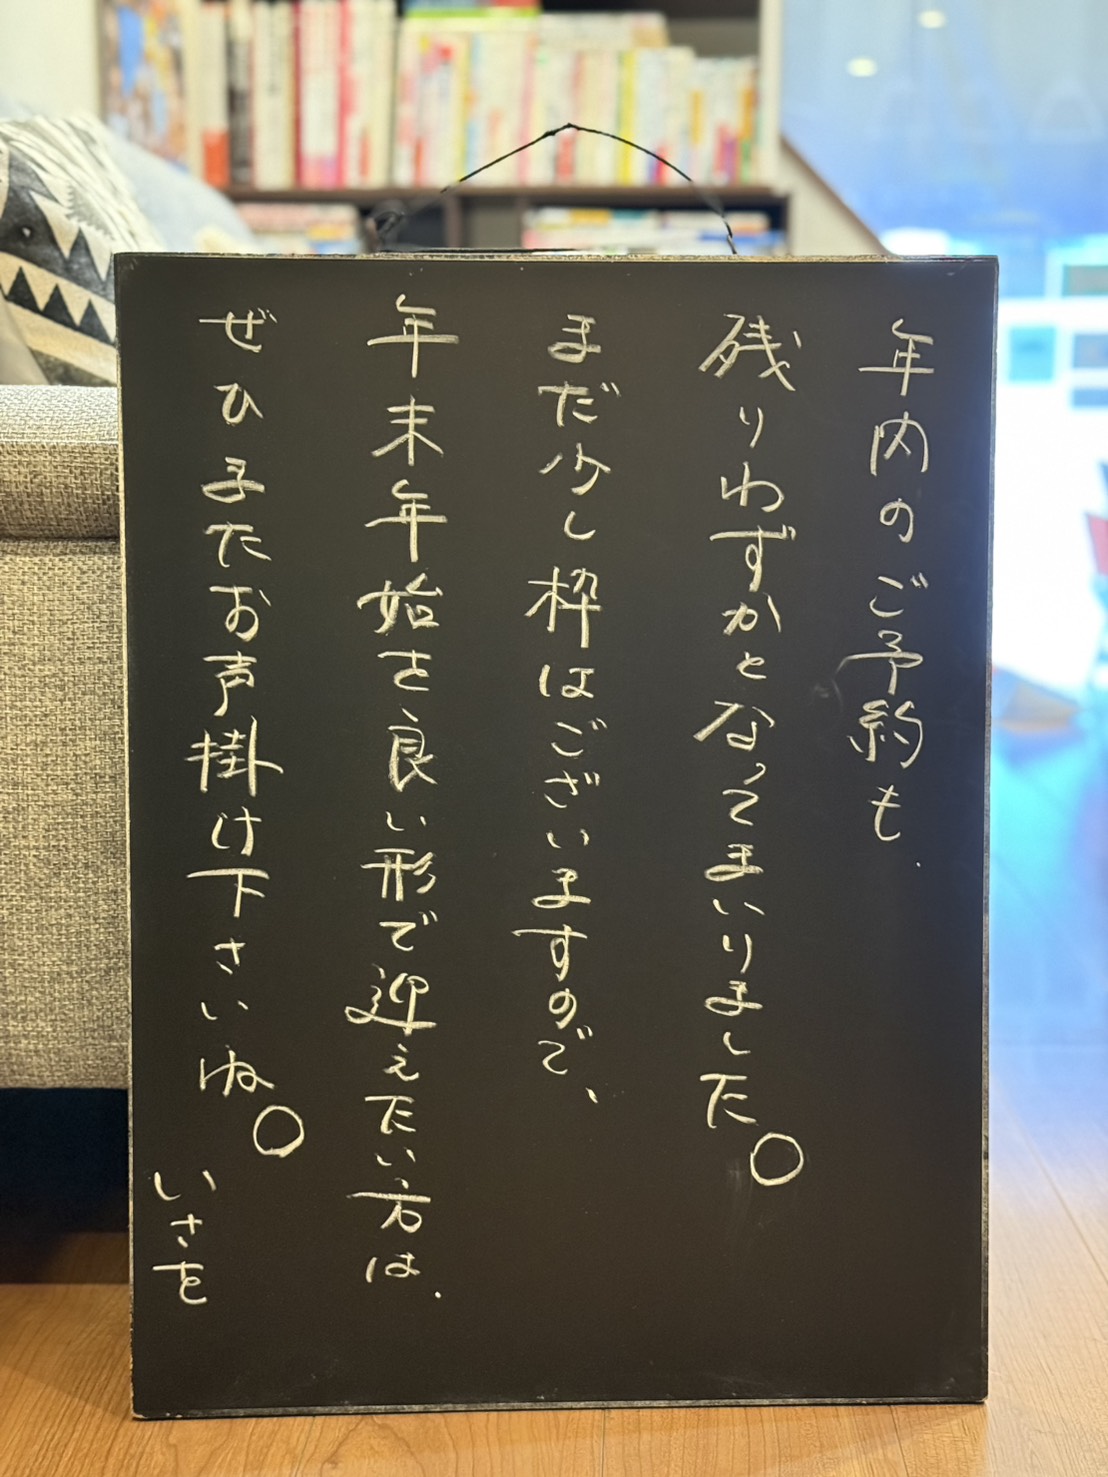 年内のご予約も、
残りわずかとなってまいりました。
まだ少し枠はございますので、
年末年始を良い形で迎えたい方は、
ぜひまたお声掛け下さいね。
いさを